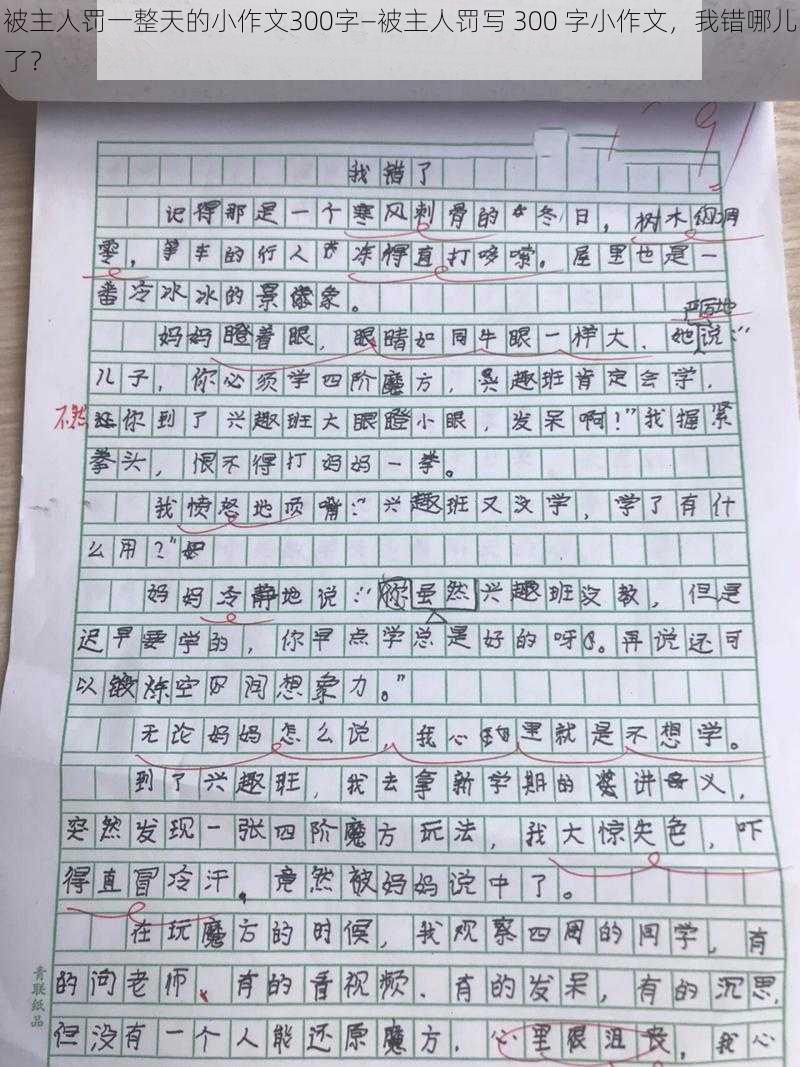 被主人罚一整天的小作文300字—被主人罚写 300 字小作文，我错哪儿
了？
91
我错了
记得那是一个寒风刺骨的冬日，树木凋
零，车的行人冻得直打哆嗦。屋里也是一
番冷冰冰的景象。
严厉地
妈妈瞪着眼，眼睛如同牛眼一样大，她说：“
儿子，你必须学四阶魔方，兴趣班肯定会学，
不然 你到了兴趣班大眼瞪小眼，发呆啊！”我握紧
拳头，恨不得打妈妈一拳。
我愤怒地顶嘴：“兴趣班又没学，学了有什
么用？”
妈妈冷静地说：“你虽然兴趣班没教，但是
迟早要学的，你早点学总是好的呀。再说还可
以锻炼空间想象力。”
无论妈妈怎么说，我心里就是不想学。
到了兴趣班，我去拿新学期的讲义，
突然发现一张四阶魔方玩法，我大惊失色，吓
得直冒冷汗，竟然被妈妈说中了。
在玩魔方的时候，我观察四周的同学，有
的问老师、有的看视频、有的发呆，有的沉思，
但没有一个人能还原魔方，心里很沮丧，我心
青联纸品